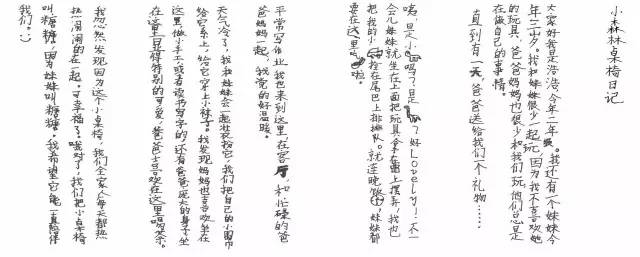 小森林桌椅日记
大家好我是浩浩,今年二年级。我还有一个妹妹今
年三岁。我和妹妹很少一起玩,因为我不喜欢她
的玩具。爸爸妈妈也很少和我们玩,他们总是
在做自己的事情。
直到有一天,爸爸送给我们一个礼物……
咦,是小吗?是了好Lovely!不一
会儿妹妹就坐在上面把玩具拿在上摆弄,我也
把我的小拴在尾巴上排排队。就连晚饭,妹妹都
要在这里啦。
平常写作业我也来到这里,在客厅和忙碌的爸
爸妈妈一起,我觉的好温暖。
天气冷了,我和妹妹会一起装扮它,我们把自己的小围巾
给它系上,给它穿上小袜子。我发现妈妈也喜欢坐在
这里,做小手工或者读书写字的,还有爸爸庞大的身子坐
在这里显得特别的可爱,爸爸喜欢在这里喝茶。
我忽然发现因为这个小桌椅,我们全家人每天都热
热闹闹的在一起。可幸福了。哦对了,我们把小桌椅
叫糖糖,因为妹妹叫糖糖。我希望它能一直陪伴
我们。:)